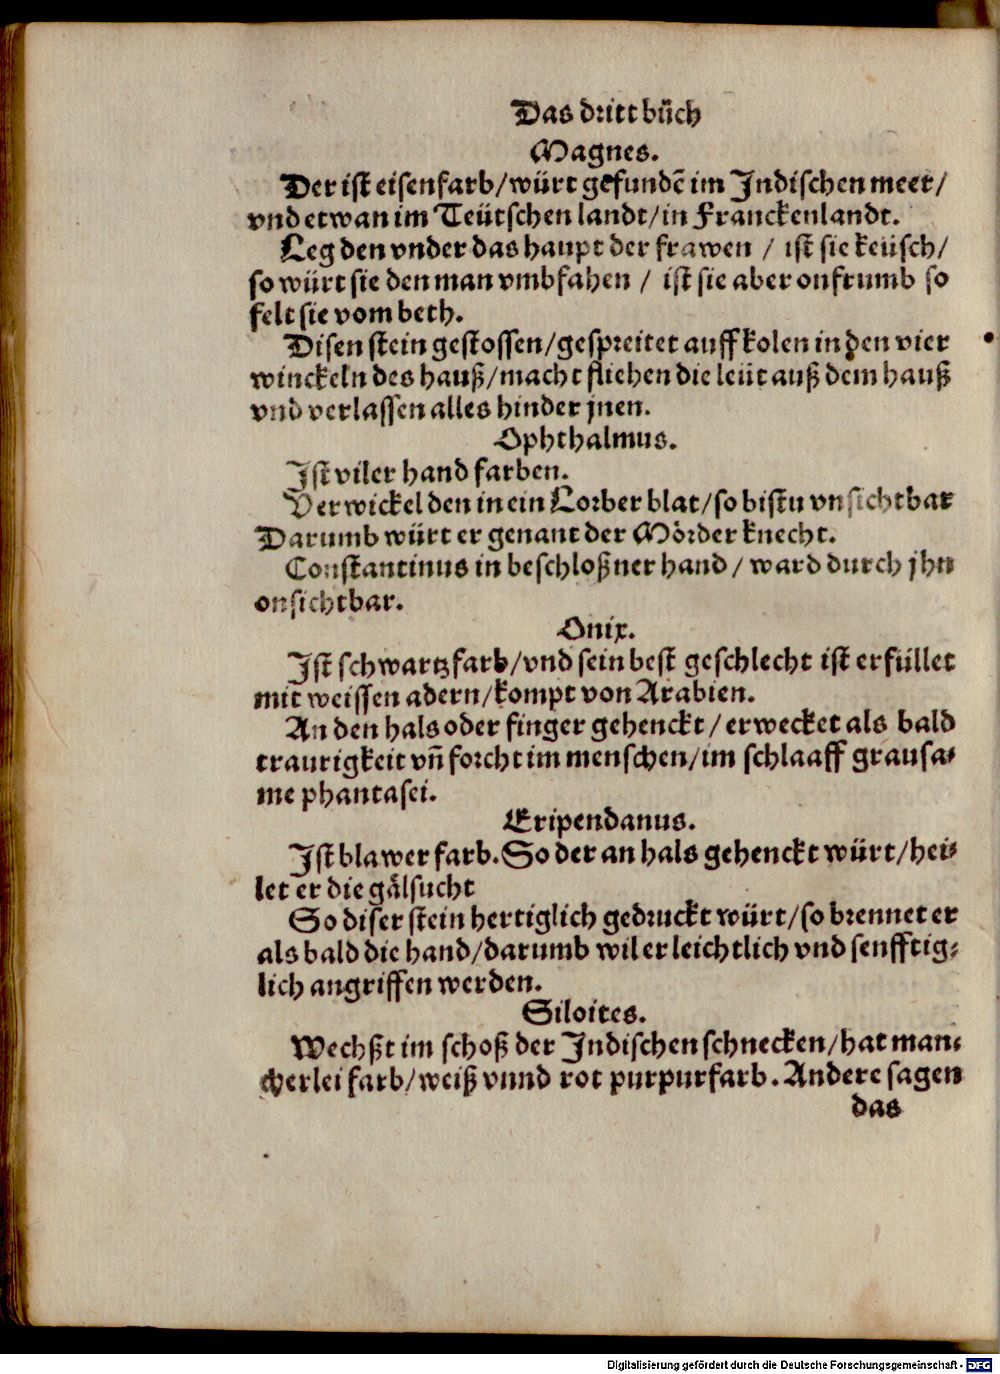 Das dritt bůch
Magnes.
Der ist eisenfarb/würt gefundē im Indischen meer/
vnd etwan im Teütschen landt/in Franckenlandt.
Leg den vnder das haupt der frawen / ist sie keüsch/
so würt sie den man vmbfahen / ist sie aber onfrumb so
felt sie vom beth.
Disen stein gestossen/gespreitet auff kolen in den vier
winckeln des hauß/macht fliehen die leüt auß dem hauß
vnd verlassen alles hinder jnen.
Ophthalmus.
Ist viler hand farben.
Verwickel den in ein Lorber blat/so bistu vnsichtbar
Darumb würt er genant der Mörder knecht.
Constantinus in beschloßner hand / ward durch jhn
onsichtbar.
Onix.
Ist schwartzfarb/vnd sein best geschlecht ist erfüllet
mit weissen adern/kompt von Arabien.
An den hals oder finger gehenckt/erwecket als bald
traurigkeit vñ forcht im menschen/im schlaaff grausa⸗
me phantasei.
Eripendanus.
Ist blawer farb. So der an hals gehenckt würt/hei⸗
let er die gälsucht
So diser stein hertiglich gedruckt würt/so brennet er
als bald die hand/darumb wil er leichtlich vnd senfftig⸗
lich angriffen werden.
Siloites.
Wechßt im schoß der Indischen schnecken/hat man⸗
cherlei farb/weiß vnnd rot purpurfarb. Andere sagen
das
Digitalisierung gefördert durch die Deutsche Forschungsgemeinschaft - DFG